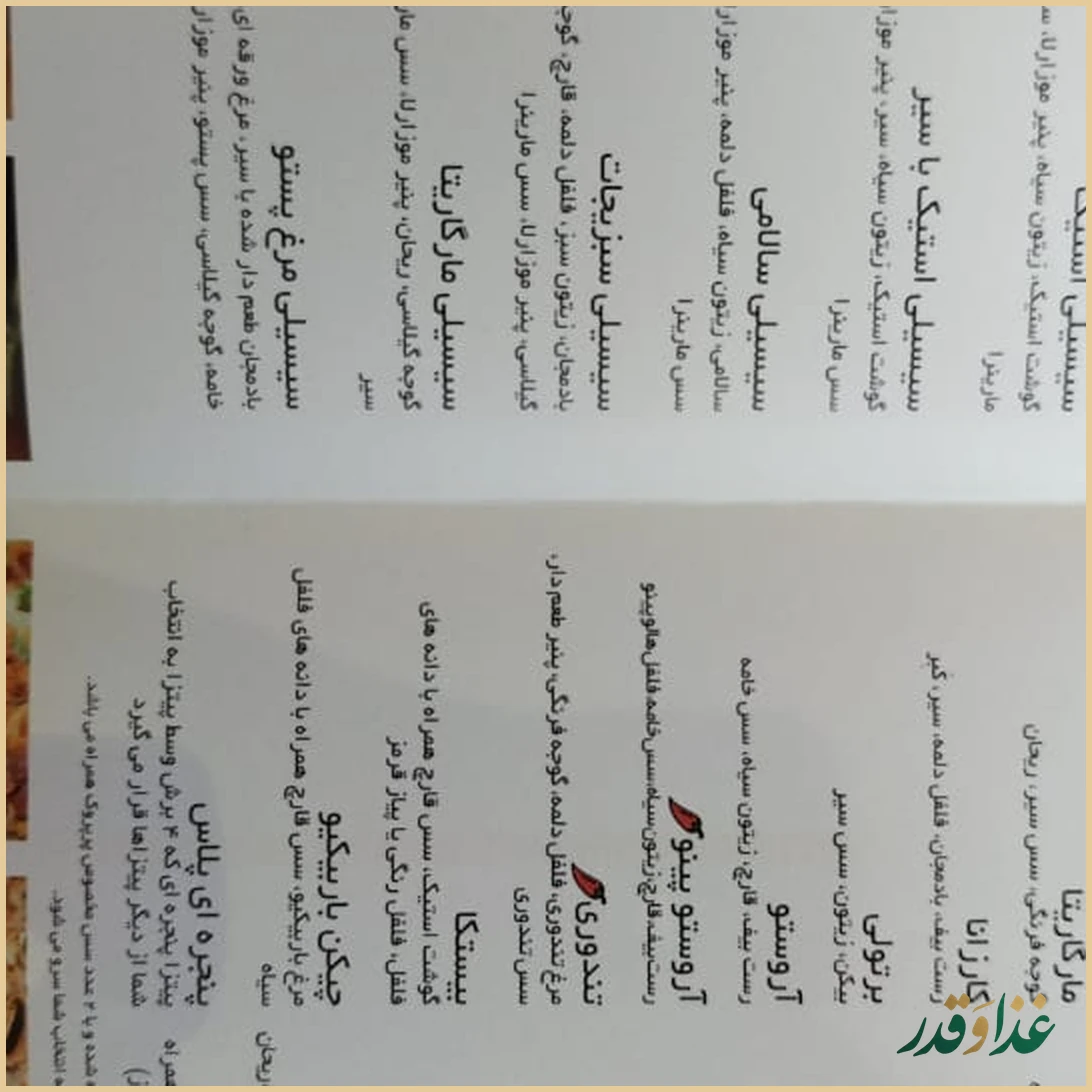 سیسیلی استیک
گوشت استیک، زیتون سیاه، پنیر موزارلا، سس
مارینرا
سیسیلی استیک با سیر
گوشت استیک، زیتون سیاه، سیر، پنیر
سس مارینرا
سیسیلی سالامی
سالامی، زیتون سیاه، فلفل دلمه، پنیر
سس مارینرا
سیسیلی سبزیجات
بادمجان، زیتون سبز، فلفل دلمه، قارچ،
گیلاسی، پنیر موزارلا، سس مارینرا
سیسیلی مارگاریتا
گوجه گیلاسی، ریحان، پنیر موزارلا، سس
سیر
سیسیلی مرغ پستو
بادمجان طعم دار شده با سیر، مرغ ورقه ای
خامه، گوجه گیلاسی، سس پستو، پنیر
مارگاریتا
گوجه فرنگی، سس سیر، ریحان
کارزانا
رست بیف، بادمجان، فلفل دلمه، سیر، کپر
برتولی
بیکن، زیتون، سس سیر
آروستو
رست بیف، قارچ، زیتون سیاه، سس خامه
آروستو پینو
رست بیف، قارچ، زیتون سیاه، سس خامه، فلفل هالوپینو
تندوری
مرغ تندوری، فلفل دلمه، گوجه فرنگی، پنیر طعم دار،
سس تندوری
بیستکا
گوشت استیک، سس قارچ همراه با دانه های
فلفل، فلفل رنگی یا پیاز قرمز
چیکن باربیکیو
مرغ باربیکیو، سس قارچ همراه با دانه های فلفل
سیاه
پنجره ای پلاس
پیتزا پنجره ای که ۴ برش وسط پیتزا به انتخاب
شما از دیگر پیتزاها قرار می گیرد
شده و با ۲ عدد سس مخصوص پرپروک همراه می باشد.
انتخاب شما سرو می شود.
ریحان
همراه
غذا و قدر